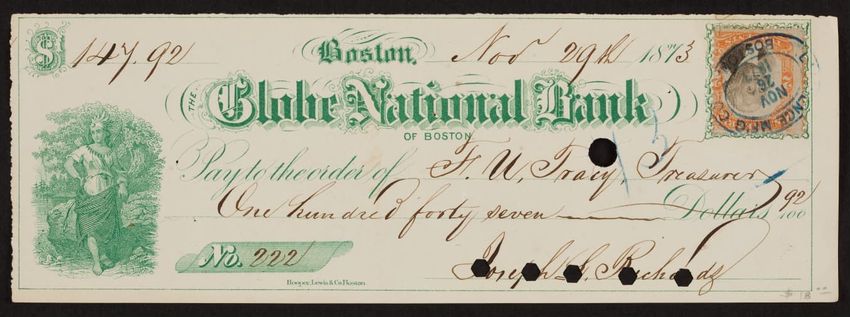 $ 147.92 Boston, Nov 29th 1873
THE Globe National Bank
OF BOSTON
Pay to the order of F. U. Tracy Treasurer
One hundred forty seven Dollars 92/100
No. 222
Joseph L. Richards
Hooper, Lewis & Co. Boston
NOV
BOSTON
MNFG CO
$ 18